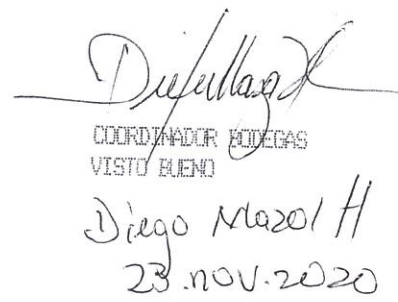 COORDINADOR BODEGAS
VISTO BUENO
Diego Mazol H
23.nov.2020